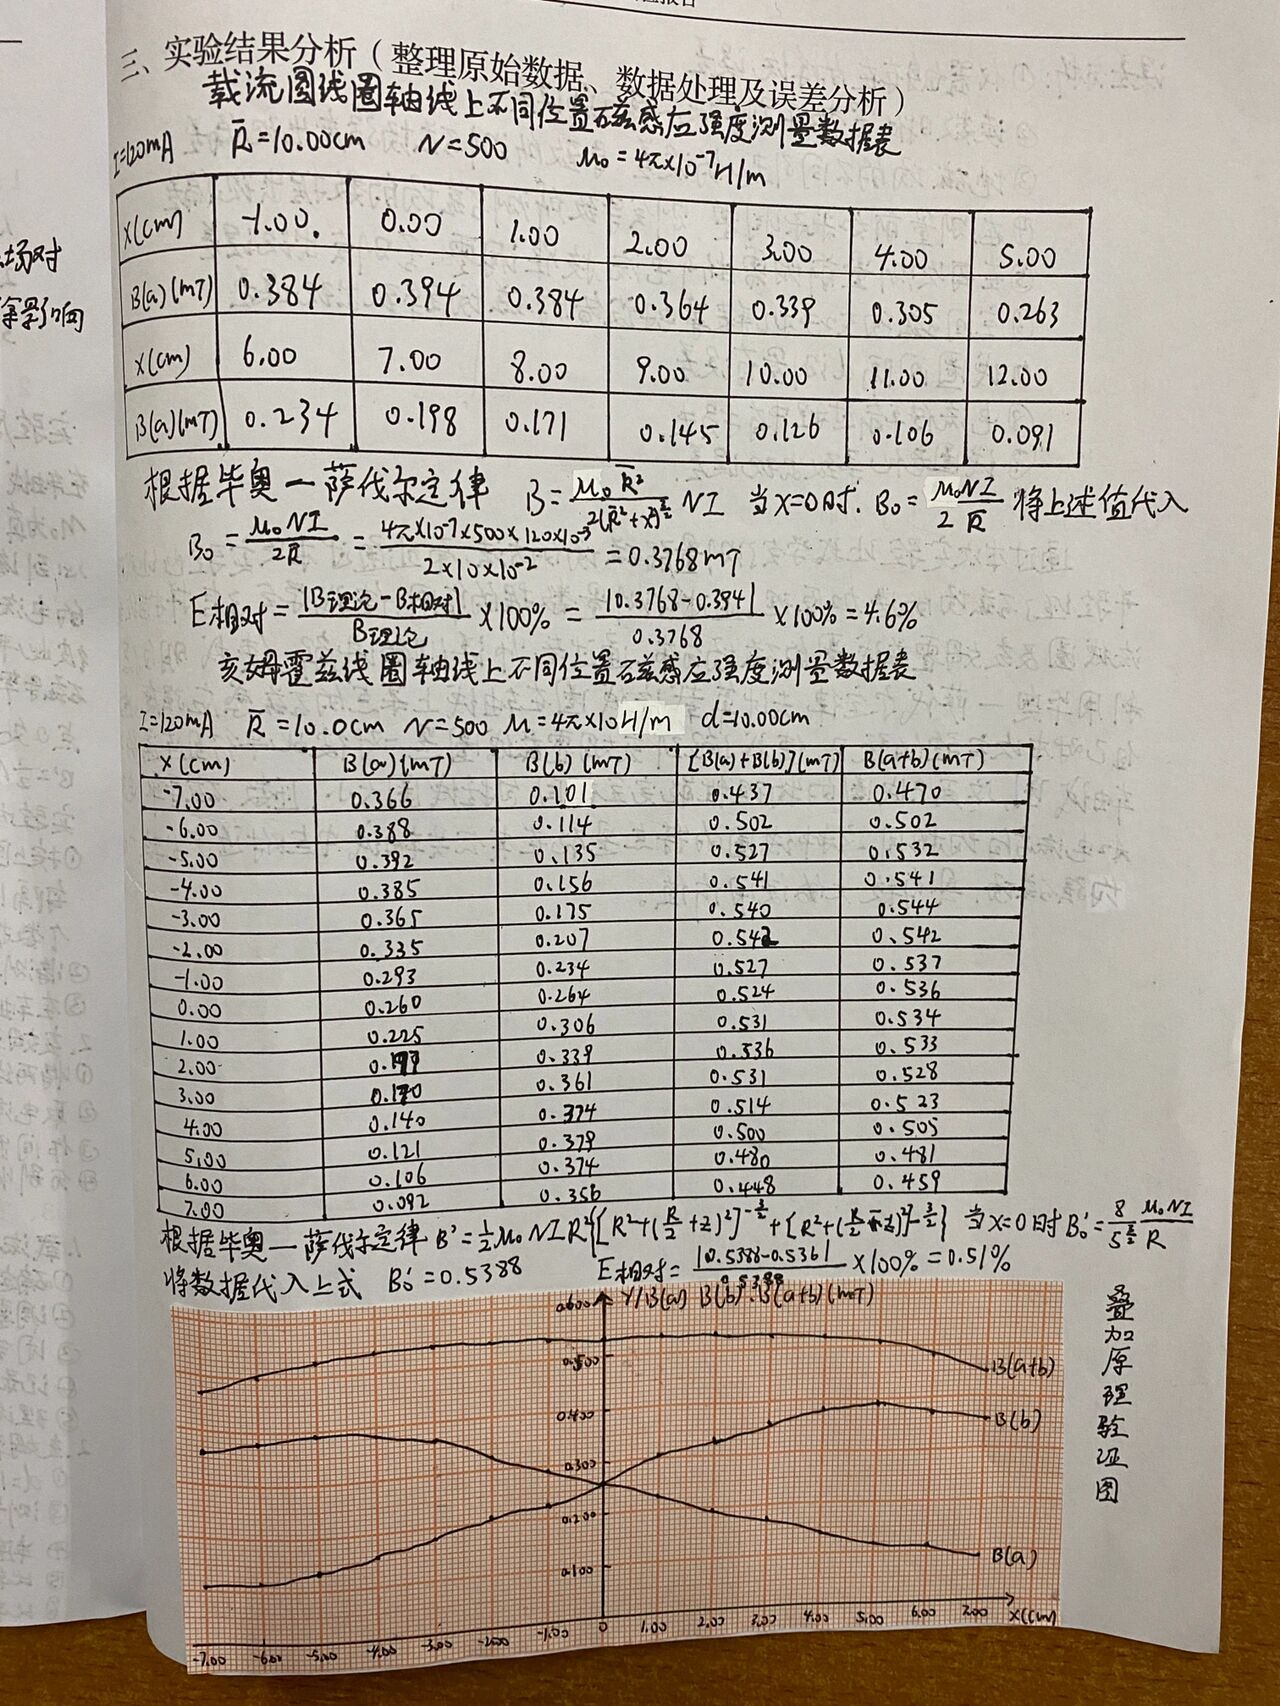 三、实验结果分析（整理原始数据、数据处理及误差分析）
载流圆线圈轴线上不同位置磁感应强度测量数据表
I=120mA R̄=10.00cm N=500 μ₀=4π×10⁻⁷H/m
X(cm) -1.00 0.00 1.00 2.00 3.00 4.00 5.00
B(a)(mT) 0.384 0.394 0.384 0.364 0.339 0.305 0.263
X(cm) 6.00 7.00 8.00 9.00 10.00 11.00 12.00
B(a)(mT) 0.234 0.198 0.171 0.145 0.126 0.106 0.091
场对
除影响
根据毕奥一萨伐尔定律 B=μ₀R̄²/2(R̄²+x²)^(3/2) NI 当X=0时. B₀=μ₀NI/2R̄ 将上述值代入
B₀=μ₀NI/2R̄=4π×10⁻⁷×500×120×10⁻³/2×10×10⁻²=0.3768mT
E相对=|B理论-B相对|/B理论×100%=|0.3768-0.394|/0.3768×100%=4.6%
亥姆霍兹线圈轴线上不同位置磁感应强度测量数据表
I=120mA R̄=10.0cm N=500 μ=4π×10H/m d=10.00cm
X(cm) B(a)(mT) B(b)(mT) [B(a)+B(b)](mT) B(a+b)(mT)
-7.00 0.366 0.101 0.437 0.470
-6.00 0.388 0.114 0.502 0.502
-5.00 0.392 0.135 0.527 0.532
-4.00 0.385 0.156 0.541 0.541
-3.00 0.365 0.175 0.540 0.544
-2.00 0.335 0.207 0.542 0.542
-1.00 0.293 0.234 0.527 0.537
0.00 0.260 0.264 0.524 0.536
1.00 0.225 0.306 0.531 0.534
2.00 0.339 0.536 0.533
3.00 0.170 0.361 0.531 0.528
4.00 0.140 0.374 0.514 0.523
5.00 0.121 0.379 0.500 0.505
6.00 0.106 0.374 0.480 0.481
7.00 0.092 0.356 0.448 0.459
根据毕奥一萨伐尔定律 B'=½μ₀NIR²{[R²+(R/2+z)²]^(-3/2)+[R²+(R/2-z)²]^(-3/2)} 当X=0时B₀'=8/5^(3/2) μ₀NI/R
将数据代入上式 B₀'=0.5388 E相对=|0.5388-0.536|/0.5388×100%=0.51%
0.600 Y/B(a) B(b) B(a+b)(mT)
0.500
B(a+b)
0.400
B(b)
0.300
0.200
B(a)
0.100
-7.00 -6.00 -5.00 -4.00 -3.00 -2.00 -1.00 0 1.00 2.00 3.00 4.00 5.00 6.00 7.00 X(cm)
叠加原理验证图